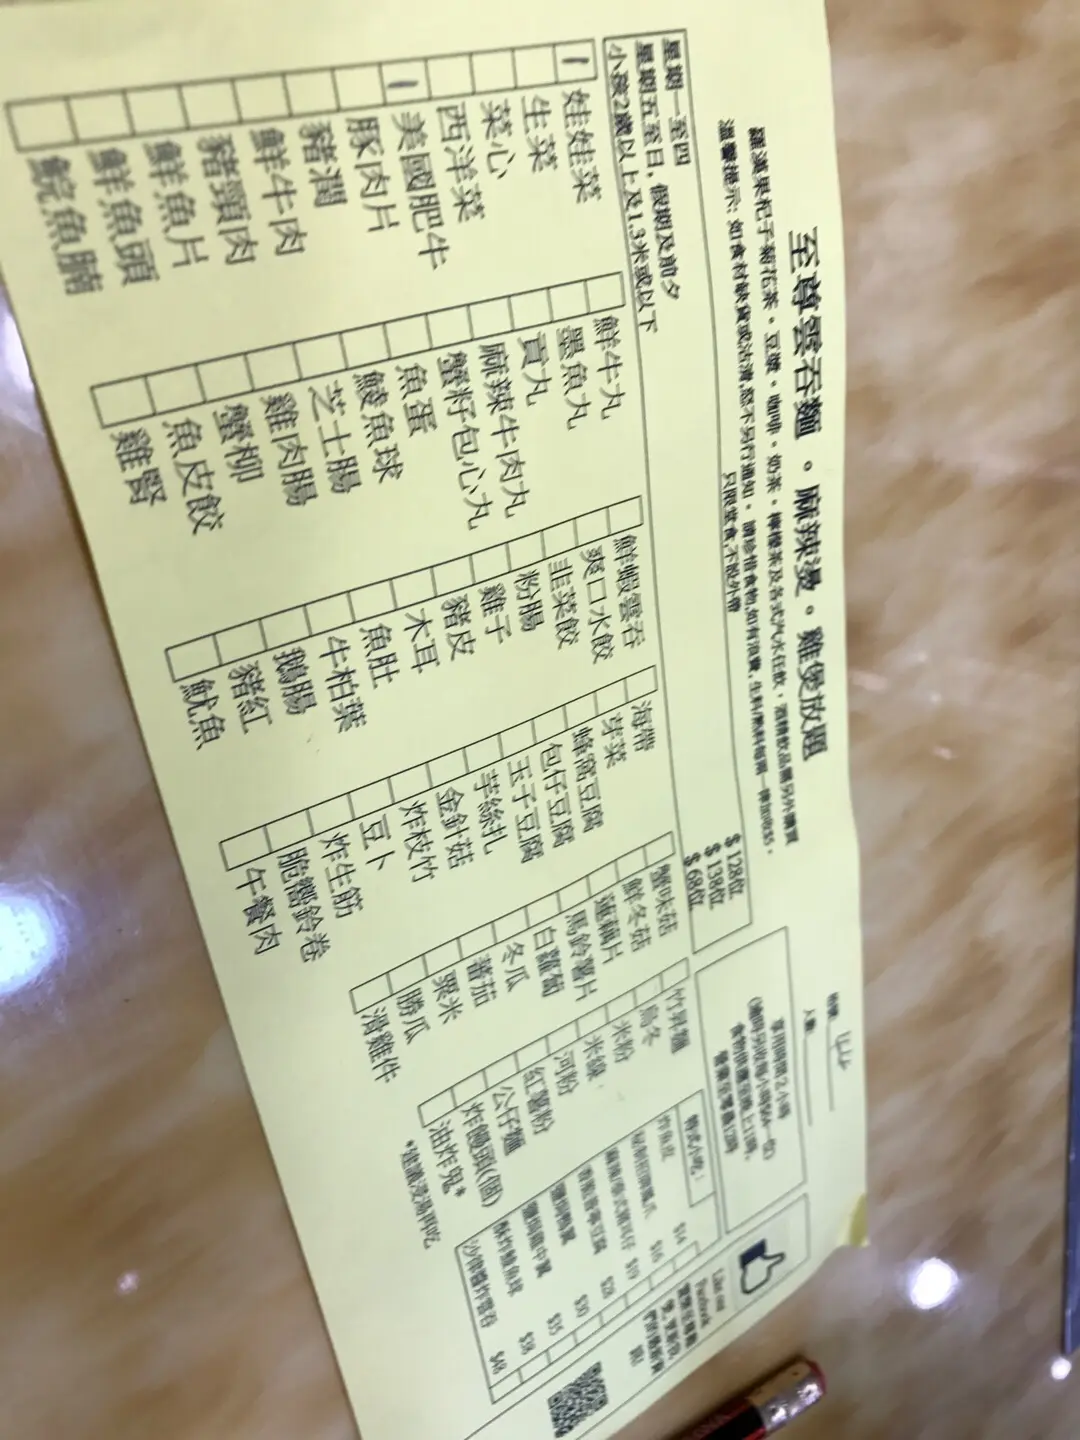 至尊雲吞麵。麻辣燙。雞煲放題
羅漢果杞子菊花茶。豆漿。咖啡。奶茶。檸檬茶及各式汽水任飲,酒精飲品需另外購買
溫馨提示: 如食材缺貨或沽清,恕不另行通知。請珍惜食物,如有浪費,
只限堂食,不設外帶
星期一至四 $128位
星期五至日, 假期及前夕 $138位
小孩2歲以上及1.3米或以下 $68位
人數:
享用時間2小時
Like our
Facebook
娃娃菜
生菜
菜心
西洋菜
美國肥牛
豚肉片
豬潤
鮮牛肉
豬頸肉
鮮魚片
鮮魚頭
鯇魚腩
鮮牛丸
墨魚丸
貢丸
麻辣牛肉丸
蟹籽包心丸
魚蛋
鯪魚球
芝士腸
雞肉腸
蟹柳
魚皮餃
雞腎
鮮蝦雲吞
爽口水餃
韭菜餃
粉腸
雞子
豬皮
木耳
魚肚
牛柏葉
鵝腸
豬紅
魷魚
海帶
芽菜
蜂窩豆腐
包仔豆腐
玉子豆腐
芋絲扎
金針菇
炸枝竹
豆卜
炸生筋
脆響鈴卷
午餐肉
蟹味菇
鮮冬菇
蓮藕片
馬鈴薯片
白蘿蔔
冬瓜
蕃茄
粟米
勝瓜
滑雞件
竹昇麵
烏冬
米粉
米線
河粉
紅薯粉
公仔麵
炸饅頭(個)
油炸鬼*
*建議浸湯再吃
炸魚皮 $14
$16
$19
$28
$30
鹽焗雞中翼 $35
酥炸鯪魚球 $38
沙律醬炸雲吞 $48